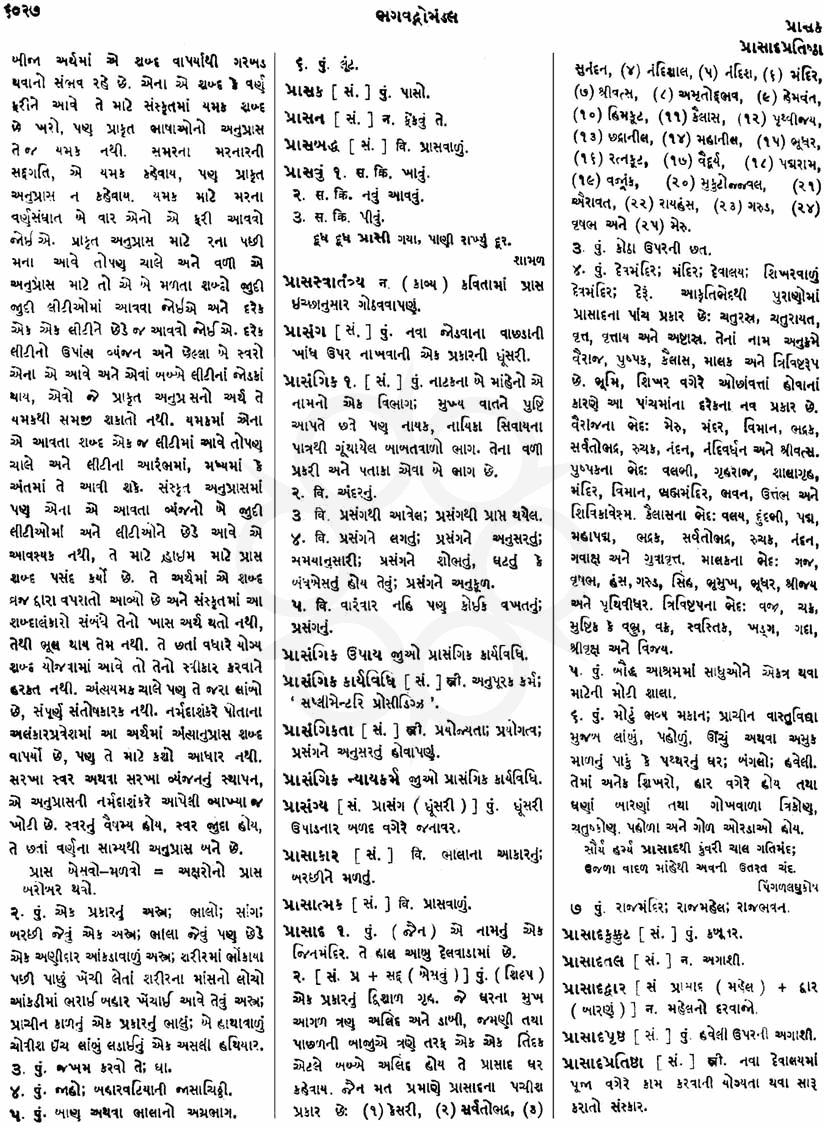 ૬૦૨૭
ભગવદ્ગોમંડલ
પ્રાસક
પ્રાસાદપ્રતિષ્ઠા
બીજા અર્થમાં એ શબ્દ વાપર્યાથી ગરબડ
થવાનો સંભવ રહે છે. એના એ શબ્દ કે વર્ણ
ફરીને આવે તે માટે સંસ્કૃતમાં યમક શબ્દ
છે ખરો, પણ પ્રાકૃત ભાષાઓનો અનુપ્રાસ
તે જ યમક નથી. સમરના મરનારની
સદ્દગતિ, એ યમક કહેવાય, પણ પ્રાકૃત
અનુપ્રાસ ન કહેવાય. યમક માટે મરના
વર્ણસંઘાત બે વાર એનો એ ફરી આવવો
જોઈએ. પ્રાકૃત અનુપ્રાસ માટે રના પછી
મના આવે તોપણ ચાલે અને વળી એ
અનુપ્રાસ માટે તો એ બે મળતા શબ્દો જુદી
જુદી લીટીઓમાં આવવા જોઈએ અને દરેક
એક એક લીટીને છેડે જ આવવો જોઈએ. દરેક
લીટીનો ઉપાંત્ય વ્યંજન અને છેલ્લા બે સ્વરો
એના એ આવે અને એવાં બબ્બે લીટીનાં જોડકાં
થાય, એવો જે પ્રાકૃત અનુપ્રસનો અર્થ તે
યમકથી સમજી શકાતો નથી. યમકમાં એના
એ આવતા શબ્દ એક જ લીટીમાં આવે તોપણ
ચાલે અને લીટીના આરંભમાં, મધ્યમાં કે
અંતમાં તે આવી શકે. સંસ્કૃત અનુપ્રાસમાં
પણ એના એ આવતા વ્યંજનો બે જુદી
લીટીઓમાં અને લીટીઓને છેડે આવે એ
આવશ્યક નથી, તે માટે હાઇમ માટે પ્રાસ
શબ્દ પસંદ કર્યો છે. તે અર્થમાં એ શબ્દ
વ્રજ દ્વારા વપરાતો આવ્યો છે અને સંસ્કૃતમાં આ
શબ્દાલંકારો સંબંધે તેનો ખાસ અર્થ થતો નથી,
તેથી ભૂલ થાય તેમ નથી. તે છતાં વધારે યોગ્ય
શબ્દ યોજવામાં આવે તો તેનો સ્વીકાર કરવાને
હરકત નથી. અંત્યયમક ચાલે પણ તે જરા લાંબો
છે, સંપૂર્ણ સંતોષકારક નથી. નર્મદાશંકરે પોતાના
અલંકારપ્રવેશમાં આ અર્થમાં અંત્યાનુપ્રાસ શબ્દ
વાપર્યો છે, પણ તે માટે કશો આધાર નથી.
સરખા સ્વર અથવા સરખા વ્યંજનનું સ્થાપન,
એ અનુપ્રાસની નર્મદાશંકરે આપેલી વ્યાખ્યા જ
ખોટી છે. સ્વરનું વૈષમ્ય હોય, સ્વર જુદા હોય,
તે છતાં વર્ણના સામ્યથી અનુપ્રાસ બને છે.
પ્રાસ બેસવો-મળવો = અક્ષરોનો પ્રાસ
બરોબર થવો.
૨. પું. એક પ્રકારનું અસ્ત્ર; ભાલો; સાંગ;
બરછી જેવું એક અસ્ત્ર; ભાલા જેવું પણ છેડે
એક અણીદાર આંકડાવાળું અસ્ત્ર; શરીરમાં ભોંકાયા
પછી પાછું ખેંચી લેતાં શરીરના માંસનો લોચો
આંકડીમાં ભરાઈ બહાર ખેંચાઈ આવે તેવું અસ્ત્ર;
પ્રાચીન કાળનું એક પ્રકારનું ભાલું; બે હાથાવાળું
ચોવીશ ઇંચ લાંબું લડાઈનું એક અસલી હથિયાર.
૩. પું. જખમ કરવો તે; ઘા.
૪. પું. જાહો; બહારવટિયાની જાસાચિઠ્ઠી.
૫. પું. બાણ અથવા ભાલાનો અગ્રભાગ.
૬. પું. ઘૂંટ.
પ્રાસક [ સં. ] પું. પાસો.
પ્રાસન [ સં. ] ન. ફેંકવું તે.
પ્રાસબદ્ધ [ સં. ] વિ. પ્રાસવાળું.
પ્રાસવું ૧. સ. ક્રિ. ખાવું.
૨. સ. ક્રિ. નવું આવવું.
૩. સ. ક્રિ. પીવું.
દૂધ દૂધ પ્રાસી ગયા, પાણી રાખ્યું દૂર.
શામળ
પ્રાસસ્વાતંત્ર્ય ન. ( કાવ્ય ) કવિતામાં પ્રાસ
ઇચ્છાનુસાર ગોઠવવાપણું.
પ્રાસંગ [ સં. ] પું. નવા જોડવાના વાછડાની
ખાંધ ઉપર નાખવાની એક પ્રકારની ધૂંસરી.
પ્રાસંગિક ૧. [ સં. ] પું. નાટકના બે માંહેનો એ
નામનો એક વિભાગ; મુખ્ય વાતને પુષ્ટિ
આપતે છતે પણ નાયક, નાયિકા સિવાયના
પાત્રથી ગૂંચાયેલ બાબતવાળો ભાગ. તેના વળી
પ્રકરી અને પતાકા એવા બે ભાગ છે.
૨. વિ. અંદરનું.
૩ વિ. પ્રસંગથી આવેલ; પ્રસંગથી પ્રાપ્ત થયેલ.
૪. વિ. પ્રસંગને લગતું; પ્રસંગને અનુસરતું;
સમયાનુસારી; પ્રસંગને શોભતું, ઘટતું કે
બંધબેસતું હોય તેવું; પ્રસંગને અનુકૂળ.
૫. વિ. વારંવાર નહિ પણ કોઈક વખતનું;
પ્રસંગનું.
પ્રાસંગિક ઉપાય જુઓ પ્રાસંગિક કાર્યવિધિ.
પ્રાસંગિક કાર્યવિધિ [ સં. ] સ્ત્રી. અનુપૂરક કર્મ;
‘ સપ્લીમેન્ટરિ પ્રોસીડિંગ્ઝ ’.
પ્રાસંગિકતા [ સં. ] સ્ત્રી. પ્રયોજ્યતા; પ્રયોગત્વ;
પ્રસંગને અનુસરતું હોવાપણું.
પ્રાસંગિક ન્યાયકર્મ જુઓ પ્રાસંગિક કાર્યવિધિ.
પ્રાસંગ્ય [ સં. પ્રાસંગ ( ધૂંસરી ) ] પું. ધૂંસરી
ઉપાડનાર બળદ વગેરે જનાવર.
પ્રાસાકાર [ સં. ] વિ. ભાલાના આકારનું;
બરછીને મળતું.
પ્રાસાત્મક [ સં. ] વિ. પ્રાસવાળું.
પ્રાસાદ ૧. પું. ( જૈન ) એ નામનું એક
જિનમંદિર. તે હાલ આબુ દેલવાડામાં છે.
૨. [ સં. પ્ર + સદ્ ( બેસવું ) ] પું. ( શિલ્પ )
એક પ્રકારનું દ્વિશાળ ગૃહ. જે ઘરના મુખ
આગળ ત્રણ અલિંદ અને ડાબી, જમણી તથા
પાછળની બાજુએ ત્રણે તરફ એક એક તિંદક
એટલે બબ્બે અલિંદ હોય તે પ્રાસાદ ઘર
કહેવાય. જૈન મત પ્રમાણે પ્રાસાદના પચીશ
પ્રકાર છે: (૧) કેસરી, (૨) સર્વતોભદ્ર, (૩)
સુનંદન, (૪) નંદિશાલ, (૫) નંદિશ, (૬) મંદિર,
(૭) શ્રીવત્સ, (૮) અમૃતોદ્ભવ, (૯) હેમવંત,
(૧૦) હિમકૂટ, (૧૧) કૈલાસ, (૧૨) પૃથ્વીજય,
(૧૩) ઇંદ્રાનીલ, (૧૪) મહાનીલ, (૧૫) ભૂધર,
(૧૬) રત્નકૂટ, (૧૭) વૈદૂર્ય, (૧૮) પદ્મરામ,
(૧૯) વર્જૂંક, (૨૦) મુકુટોજ્જવલ, (૨૧)
ઐરાવત, (૨૨) રાયહંસ, (૨૩) ગરુડ, (૨૪)
વૃષભ અને (૨૫) મેરુ.
૩. પું. કોઠા ઉપરની છત.
૪. પું. દેવમંદિર; મંદિર; દેવાલય; શિખરવાળું
દેવમંદિર; દેરું. આકૃતિભેદથી પુરાણોમાં
પ્રાસાદના પાંચ પ્રકાર છે: ચતુરસ્ર, ચતુરાયત,
વૃત્ત, વૃત્તાય અને અષ્ટાસ્ર. તેનાં નામ અનુક્રમે
વૈરાજ, પુષ્પક, કૈલાસ, માલક અને ત્રિવિષ્ટરૂપ
છે. ભૂમિ, શિખર વગેરે ઓછાંવત્તાં હોવાનાં
કારણે આ પાંચમાંના દરેકના નવ પ્રકાર છે.
વૈરાજના ભેદ: મેરુ, મંદર, વિમાન, ભદ્રક,
સર્વતોભદ્ર, રુચક, નંદન, નંદિવર્ધન અને શ્રીવત્સ.
પુષ્પકના ભેદ: વલભી, ગૃહરાજ, શાલાગૃહ,
મંદિર, વિમાન, બ્રહ્મમંદિર, ભવન, ઉત્તંભ અને
શિવિકાવેશ્મ. કૈલાસના ભેદ: વલય, દુંદુભી, પદ્મ,
મહાપદ્મ, ભદ્રક, સર્વતોભદ્ર, રુચક, નંદન,
ગવાક્ષ અને ગુવાવૃત્ત. માલકના ભેદ: ગજ,
વૃષભ, હંસ, ગરુડ, સિંહ, ભૂમુખ, ભૂધર, શ્રીજય
અને પૃથિવીધર. ત્રિવિષ્ટપના ભેદ: વજ્ર, ચક્ર,
મુષ્ટિક કે વભ્રુ, વક્ર, સ્વસ્તિક, ખડ્ગ, ગદા,
શ્રીવૃક્ષ અને વિજય.
૫. પું. બૌદ્ધ આશ્રમમાં સાધુઓને એકત્ર થવા
માટેની મોટી શાલા.
૬. પું. મોટું ભવ્ય મકાન; પ્રાચીન વાસ્તુવિદ્યા
મુજબ લાંબું, પહોળું, ઊંચું અથવા અમુક
માળનું પાકું કે પથ્થરનું ઘર; બંગલો; હવેલી.
તેમાં અનેક શિખરો, હાર વગેરે હોય તથા
ઘણાં બારણાં તથા ગોખવાળા ત્રિકોણ,
ચતુષ્કોણ, પહોળા અને ગોળ ઓરડાઓ હોય.
સૌર્ય હર્મ્ય પ્રાસાદથી કુંવરી ચાલ ગતિમંદ;
ઉજળા વાદળ માંહેથી અવની ઉતરત ચંદ.
પિંગળલઘુકોષ
૭ પું. રાજમંદિર; રાજમહેલ; રાજભવન.
પ્રાસાદકુક્કુટ [ સં. ] પું. કબૂતર.
પ્રાસાદતલ [ સં. ] ન. અગાશી.
પ્રાસાદદ્વાર [ સં પ્રાસાદ ( મહેલ ) + દ્વાર
( બારણું ) ] ન. મહેલનો દરવાજો.
પ્રાસાદપૃષ્ઠ [ સં. ] પું. હવેલી ઉપરની અગાશી.
પ્રાસાદપ્રતિષ્ઠા [ સં. ] સ્ત્રી. નવા દેવાલયમાં
પૂજા વગેરે કામ કરવાની યોગ્યતા થવા સારૂ
કરાતો સંસ્કાર.